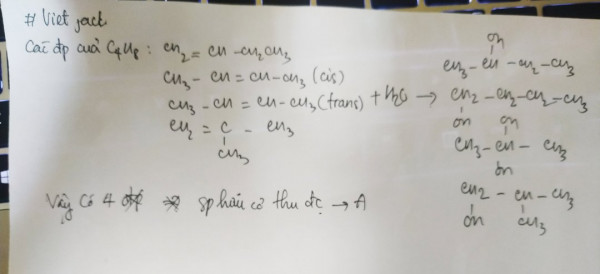 # Viet jack
Các đp của C4H8 : CH2 = CH - CH2CH3
CH3 - CH = CH - CH3 (cis)
CH3 - CH = CH - CH3 (trans) + H2O →
CH2 = C - CH3
CH3
OH
CH3 - CH - CH2 - CH3
CH2 - CH2 - CH2 - CH3
OH
OH
CH3 - CH - CH3
OH
CH2 - CH - CH3
OH CH3
Vậy có 4 sp hữu cơ thu đc → A